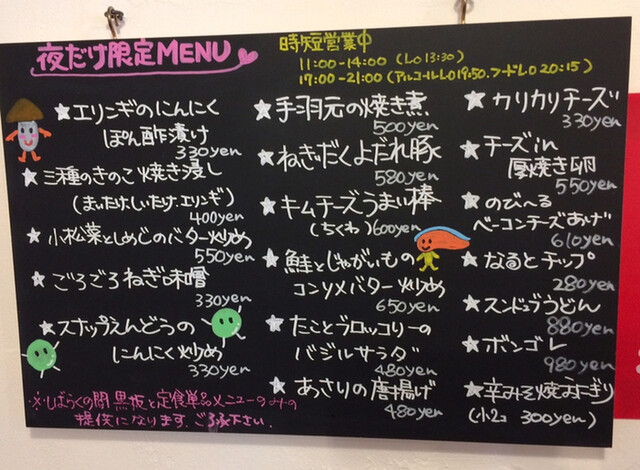 夜だけ限定MENU
時短営業中
11:00-14:00 (LO 13:30)
17:00-21:00 (アルコールLO 19:50. フードLO 20:15)
★エリンギのにんにく
ぽん酢漬け
330yen
★三種のきのこ焼き浸し
(まいたけ.しいたけ.エリンギ)
400yen
★小松菜としめじのバター炒め
550yen
★ごろごろねぎ味噌
330yen
★スナップえんどうの
にんにく炒め
330yen
★手羽元の焼き煮
500yen
★ねぎだくよだれ豚
580yen
★キムチーズうまい棒
(ちくわ)600yen
★鮭とじゃがいもの
コンソメバター炒め
650yen
★たことブロッコリーの
バジルサラダ
480yen
★あさりの唐揚げ
480yen
★カリカリチーズ
330yen
★チーズin
厚焼き卵
550yen
★のび〜る
ベーコンチーズあげ
610yen
★なるとチップ
280yen
★スンドゥブうどん
880yen
★ボンゴレ
980yen
★辛みそ焼おにぎり
(小2コ 300yen)
※しばらくの間 黒板と定食単品メニューのみの
提供になります。ご了承下さい.